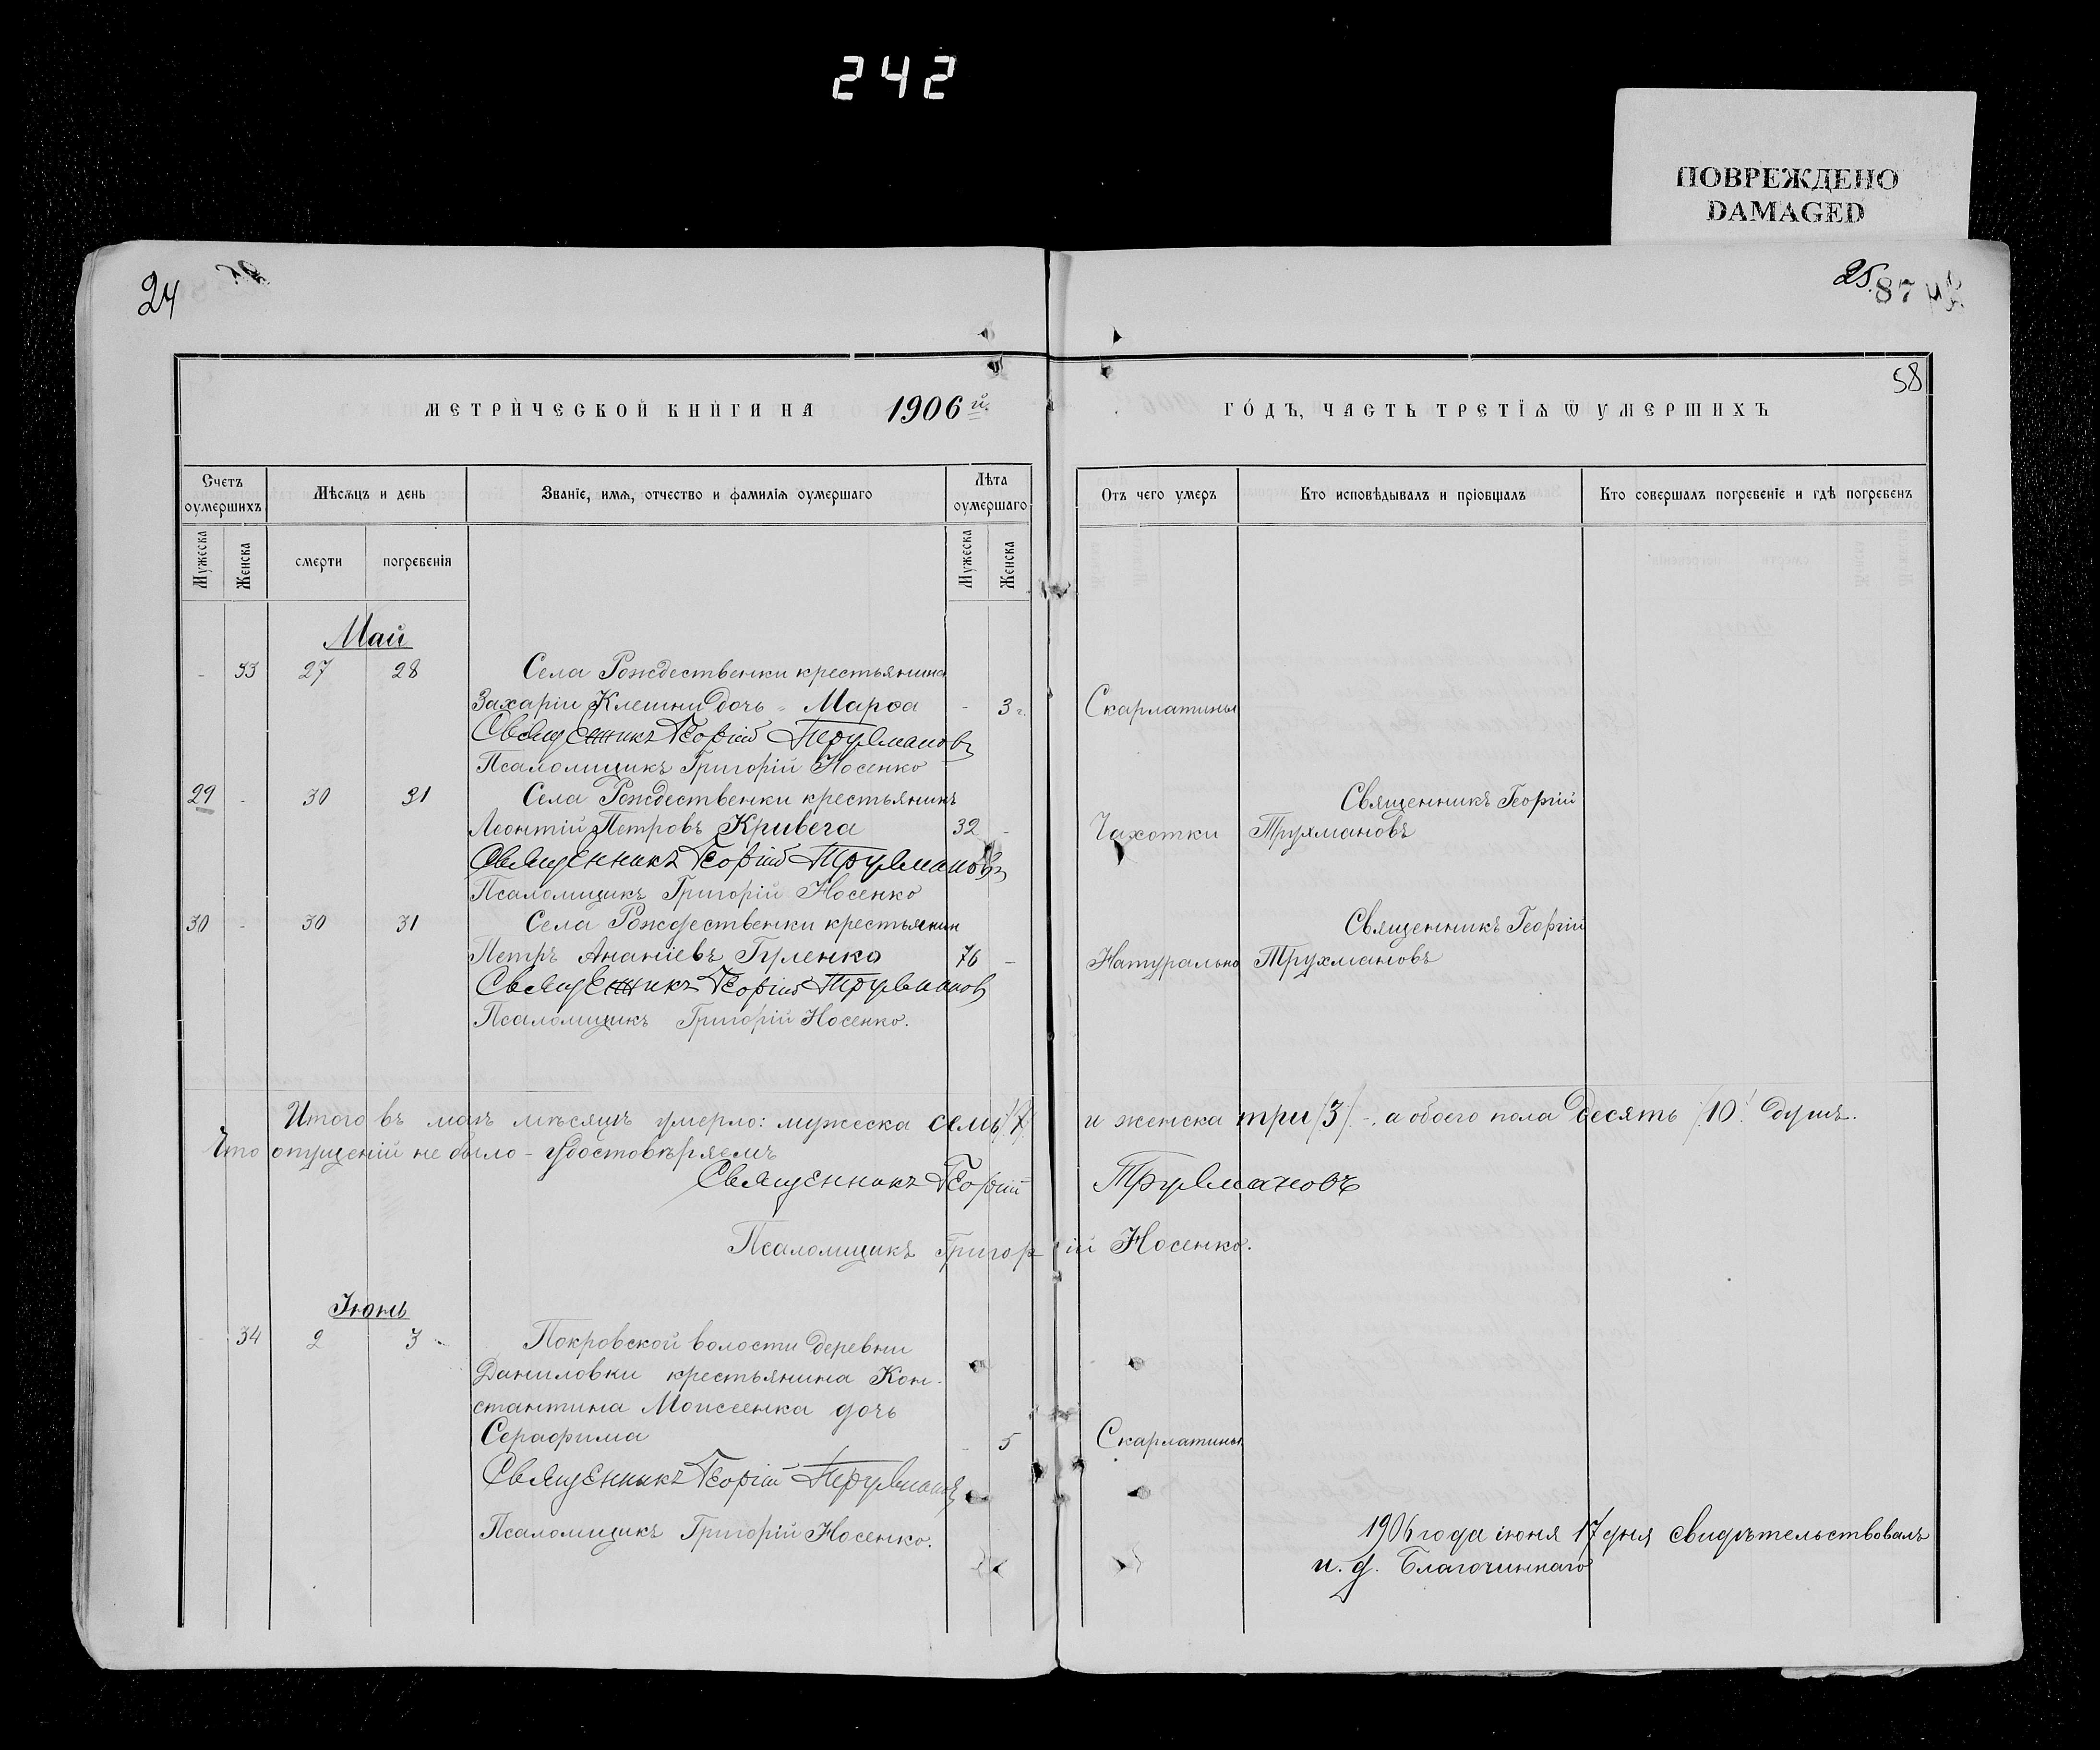 242
ПОВРЕЖДЕНО
DAMAGED
24
25.
87
58
МЕТРИЧЕСКОЙ КНИГИ НА 1906 й.
ГОДЪ, ЧАСТЬ ТРЕТІѦ Ѿ УМЕРШИХЪ
Счетъ оумершихъ
Мѣсѧцъ и день
Званіе, имѧ, отчество и фамиліѧ оумершаго
Лѣта оумершаго
Отъ чего умеръ
Кто исповѣдывалъ и пріобщалъ
Кто совершалъ погребеніе и гдѣ погребенъ
Мужеска
Женска
смерти
погребенія
Мужеска
Женска
Май
- 33 27 28 Села Рождественки крестьянина
Захаріи Клешни дочь - Марѳа - 3 г. Скарлатины
Священникъ Георгій Трухмановъ
Псаломщикъ Григорій Носенко
29 - 30 31 Села Рождественки крестьянинъ Священникъ Георгій
Леонтій Петровъ Кривега 32 - Чахотки Трухмановъ
Священникъ Георгій Трухмановъ
Псаломщикъ Григорій Носенко
30 - 30 31 Села Рождественки крестьянин Священникъ Георгій
Петръ Ананіевъ Гуленко 76 - Натурально Трухмановъ
Священникъ Георгій Трухманов
Псаломщикъ Григорій Носенко.
Итого въ маѣ мѣсяцѣ умерло: мужеска семь /7/ и женска три /3/ -, а обоего пола десять /10/ душъ.
Что опущеній не было - удостовѣряемъ
Священникъ Георгій Трухмановъ
Псаломщикъ Григорій Носенко.
Іюнь
- 34 2 3 Покровской волости деревни
Даниловки крестьянина Кон-
стантина Моисеенка дочь
Серафима - 5 Скарлатины
Священникъ Георгій Трухмановъ
Псаломщикъ Григорій Носенко.
1906 года іюня 17 дня свидѣтельствовалъ
и. д. Благочиннаго